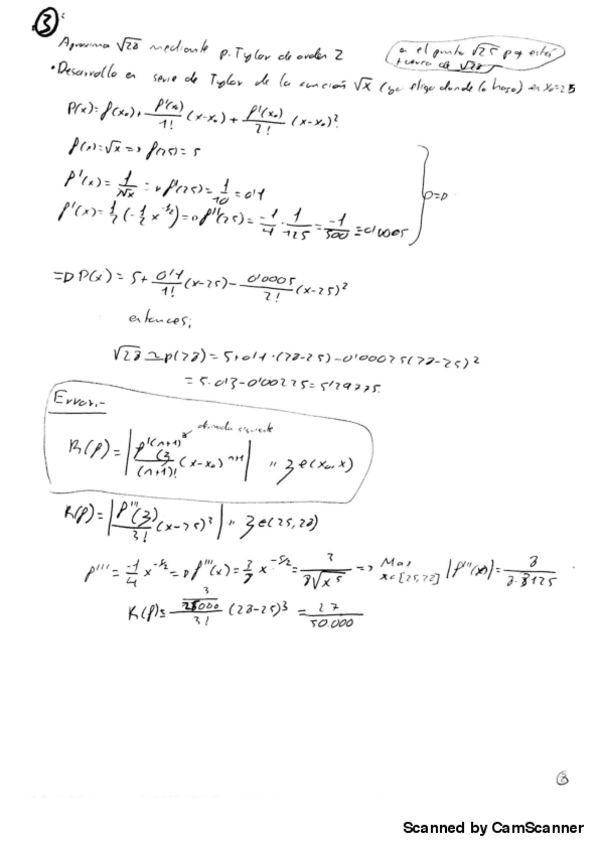 3
Aproxima √28 mediante p. Tylor de orden 2
en el punto √25 pq está
cerca de √28
• Desarrollo en serie de Tylor de la función √x (yo eligo donde lo hago) en x₀=25
P(x)= f(x₀)+ f'(x₀)/1! (x-x₀) + f''(x₀)/2! (x-x₀)²
f(x)=√x => f(25)=5
f'(x)= 1/2√x => f'(25)= 1/10 = 0'1
f''(x)= 1/2 (-1/2 x^-3/2) => f''(25)= -1/4 · 1/125 = -1/500 = 0'0005
=>
=> P(x)= 5+ 0'1/1! (x-25) - 0'0005/2! (x-25)²
entonces;
√28 ≃ p(28) = 5+0'1·(28-25)-0'00025(28-25)²
= 5+0'3-0'00225=5'29775
Error.-
R(f)= | f^(n+1)(ξ)/(n+1)! (x-x₀)^n+1 | ,, ξ∈(x₀,x)
R(f)= | f'''(ξ)/3! (x-25)³ | ,, ξ∈(25,28)
f''' = -1/4 x^-3/2 => f'''(x)= 3/8 x^-5/2 = 3/8√x⁵ => Max x∈[25,28] |f'''(x)| = 3/8·3125
R(f)≤ 3/25000/3! (28-25)³ = 27/50.000
Scanned by CamScanner